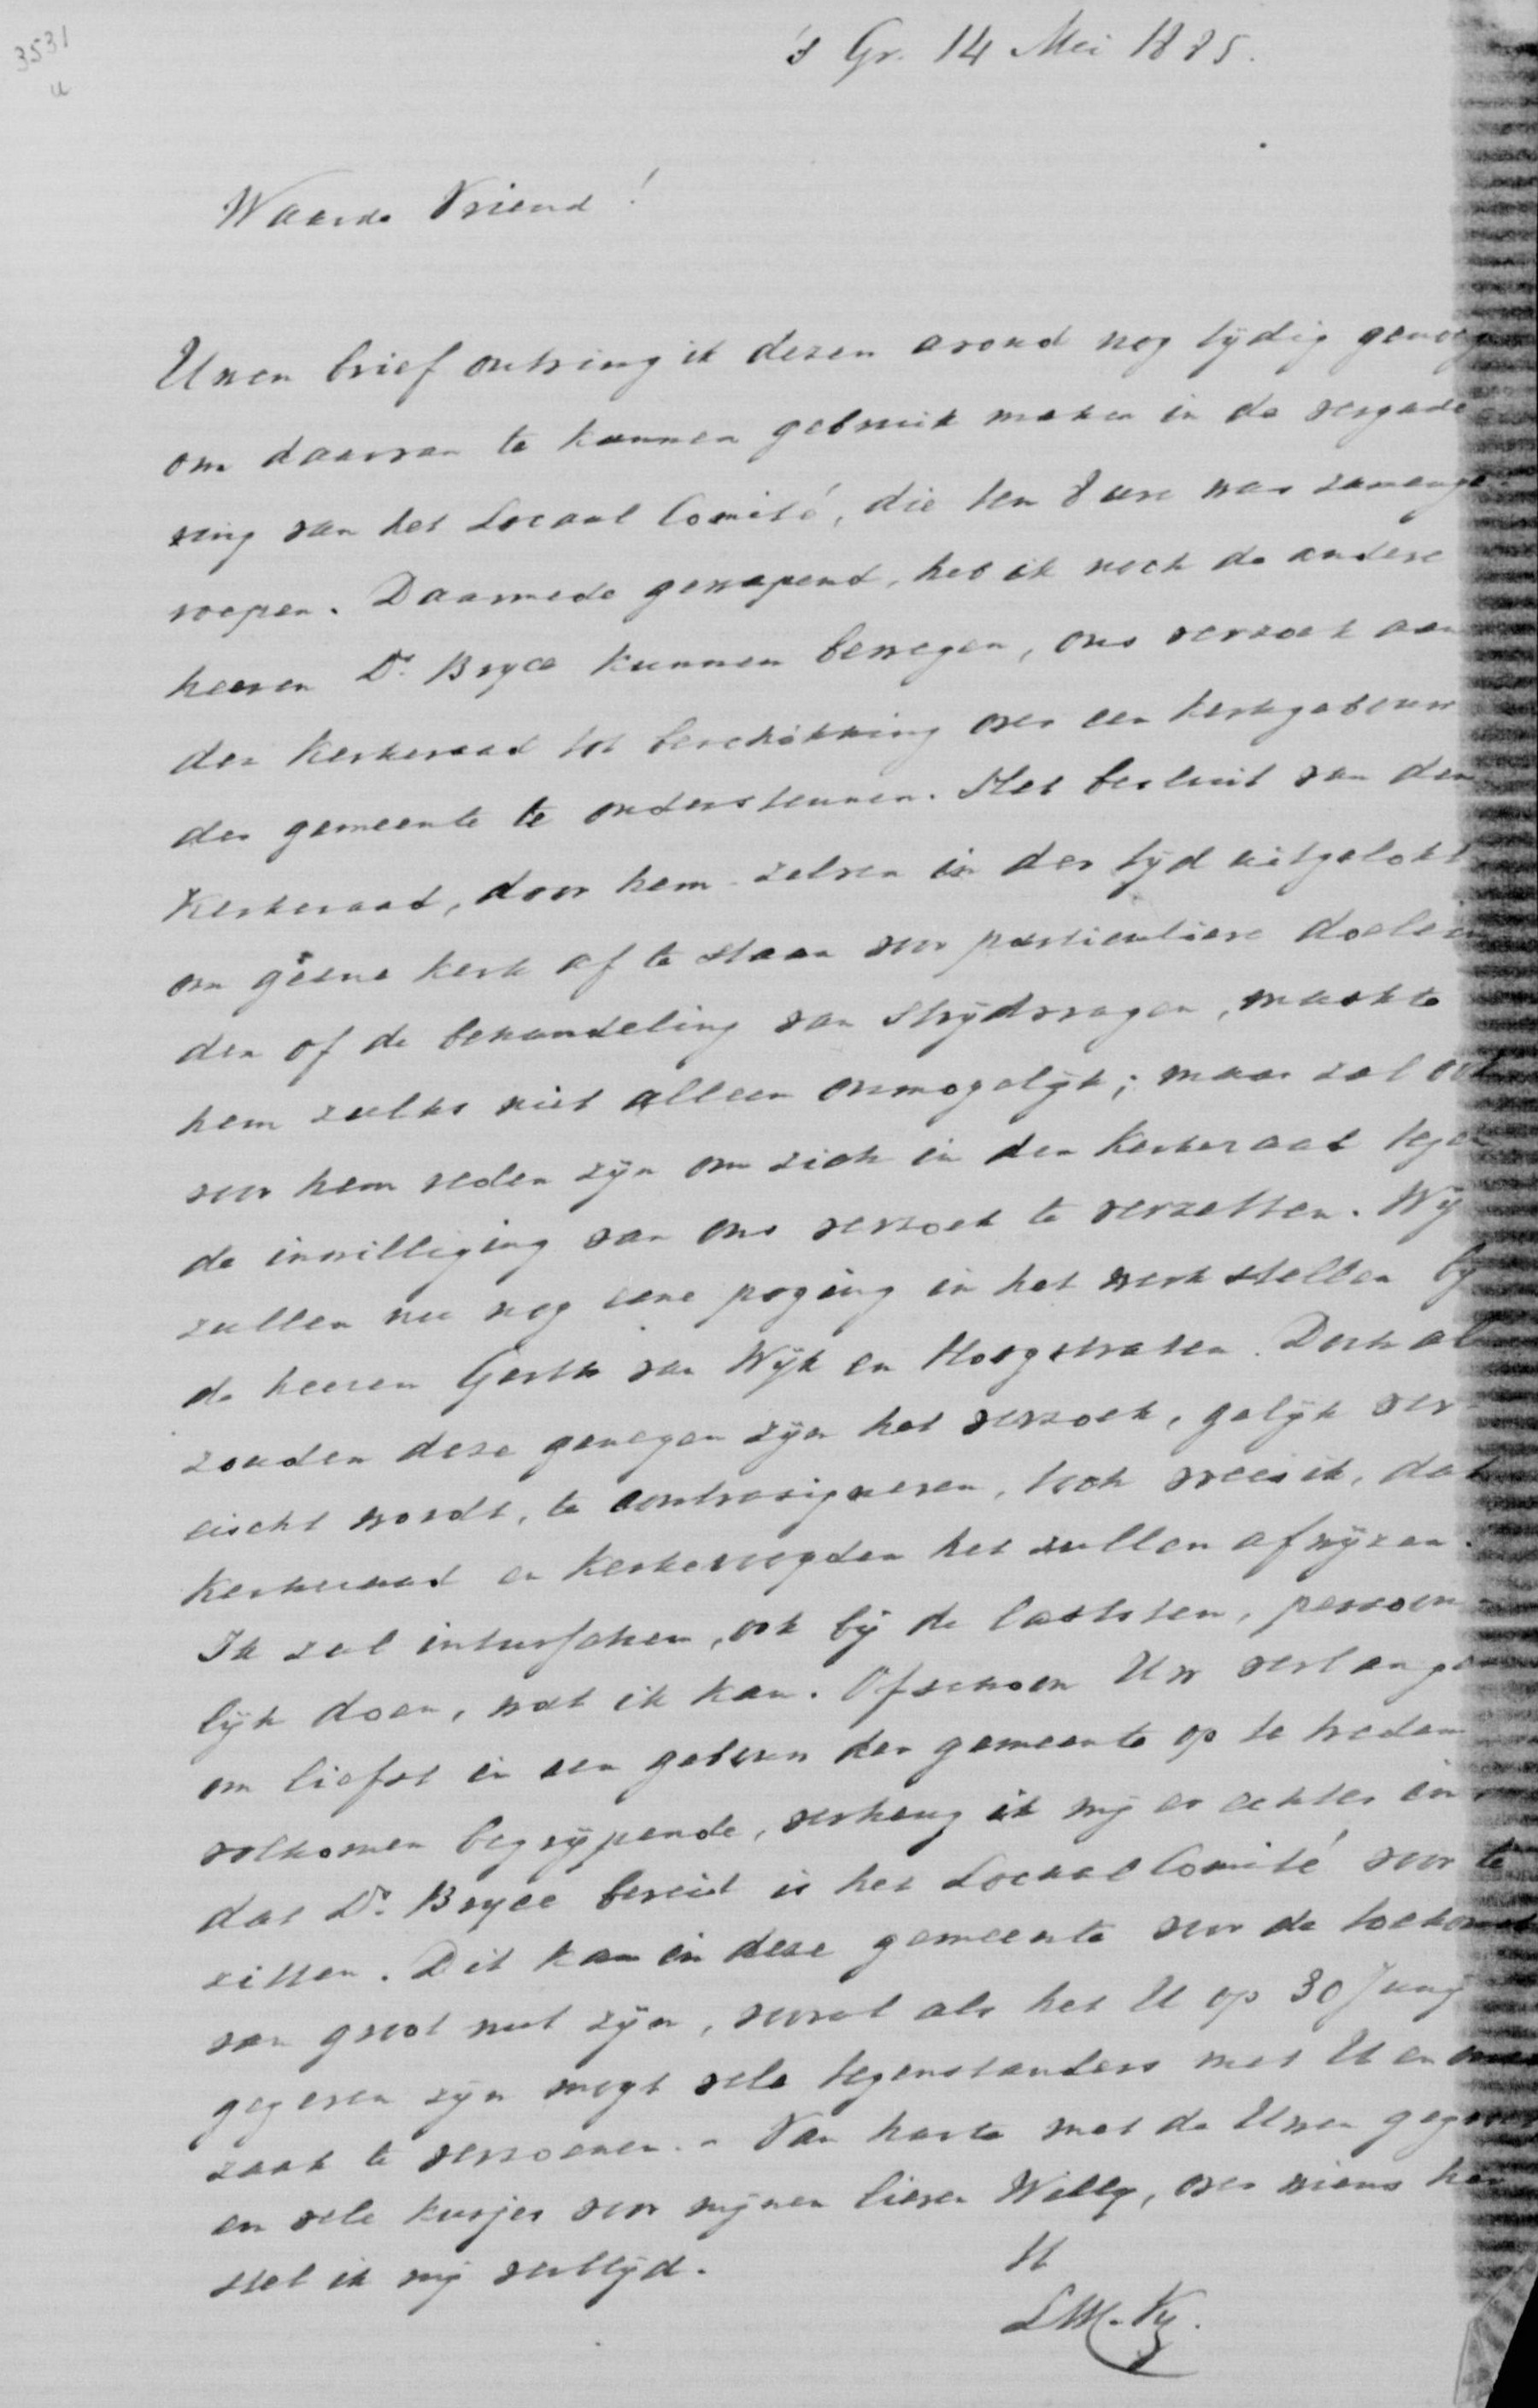 3531
u
's Gr. 14 Mei 1885.
Waarde Vriend!
Uwen brief ontving ik dezen avond nog tijdig genoeg
om daarvan te kunnen gebruik maken in de vergade
ring van het Locaal Comité, die ten 8 ure was zamenge-
roepen. Daarmede gewapend, heb ik noch de andere
heeren Ds. Bryce kunnen bewegen, ons verzoek aan
den Kerkeraad tot beschikking over een kerkgebouw
der gemeente te ondersteunen. Het besluit van den
Kerkeraad, door hem-zelven in der tijd uitgelokt
om geene kerk af te staan voor particuliere doelein
den of de behandeling van strijdvragen, maakte
hem zulks niet alleen onmogelijk; maar zal ook
voor hem reden zijn om zich in den Kerkeraad tegen
de inwilliging van ons verzoek te verzetten. Wij
zullen nu nog eene poging in het werk stellen bij
de heeren Gerth van Wijk en Hoogstraten. Doch al
zouden deze genegen zijn het verzoek, gelijk ver-
eischt wordt, te contrasigneren, toch vrees ik, dat
Kerkeraad en Kerkevoogden het zullen afwijzen.
Ik zal intusschen, ook bij de laatsten, persoon-
lijk doen, wat ik kan. Ofschoon Uw verlangen
om liefst in een gebouw der gemeente op te treden
volkomen begrijpende, verheug ik mij er echter in
dat Ds. Bryce bereid is het Locaal Comité voor te
zitten. Dit kan in deze gemeente voor de toekomst
van groot nut zijn, vooral als het U op 30 Junij
gegeven zijn mogt vele tegenstanders met U en onze
zaak te verzoenen. - Van harte met de Uwen gegroet
en vele kusjes voor mijnen lieven Willy, over wiens her
stel ik mij verblijd.
tt